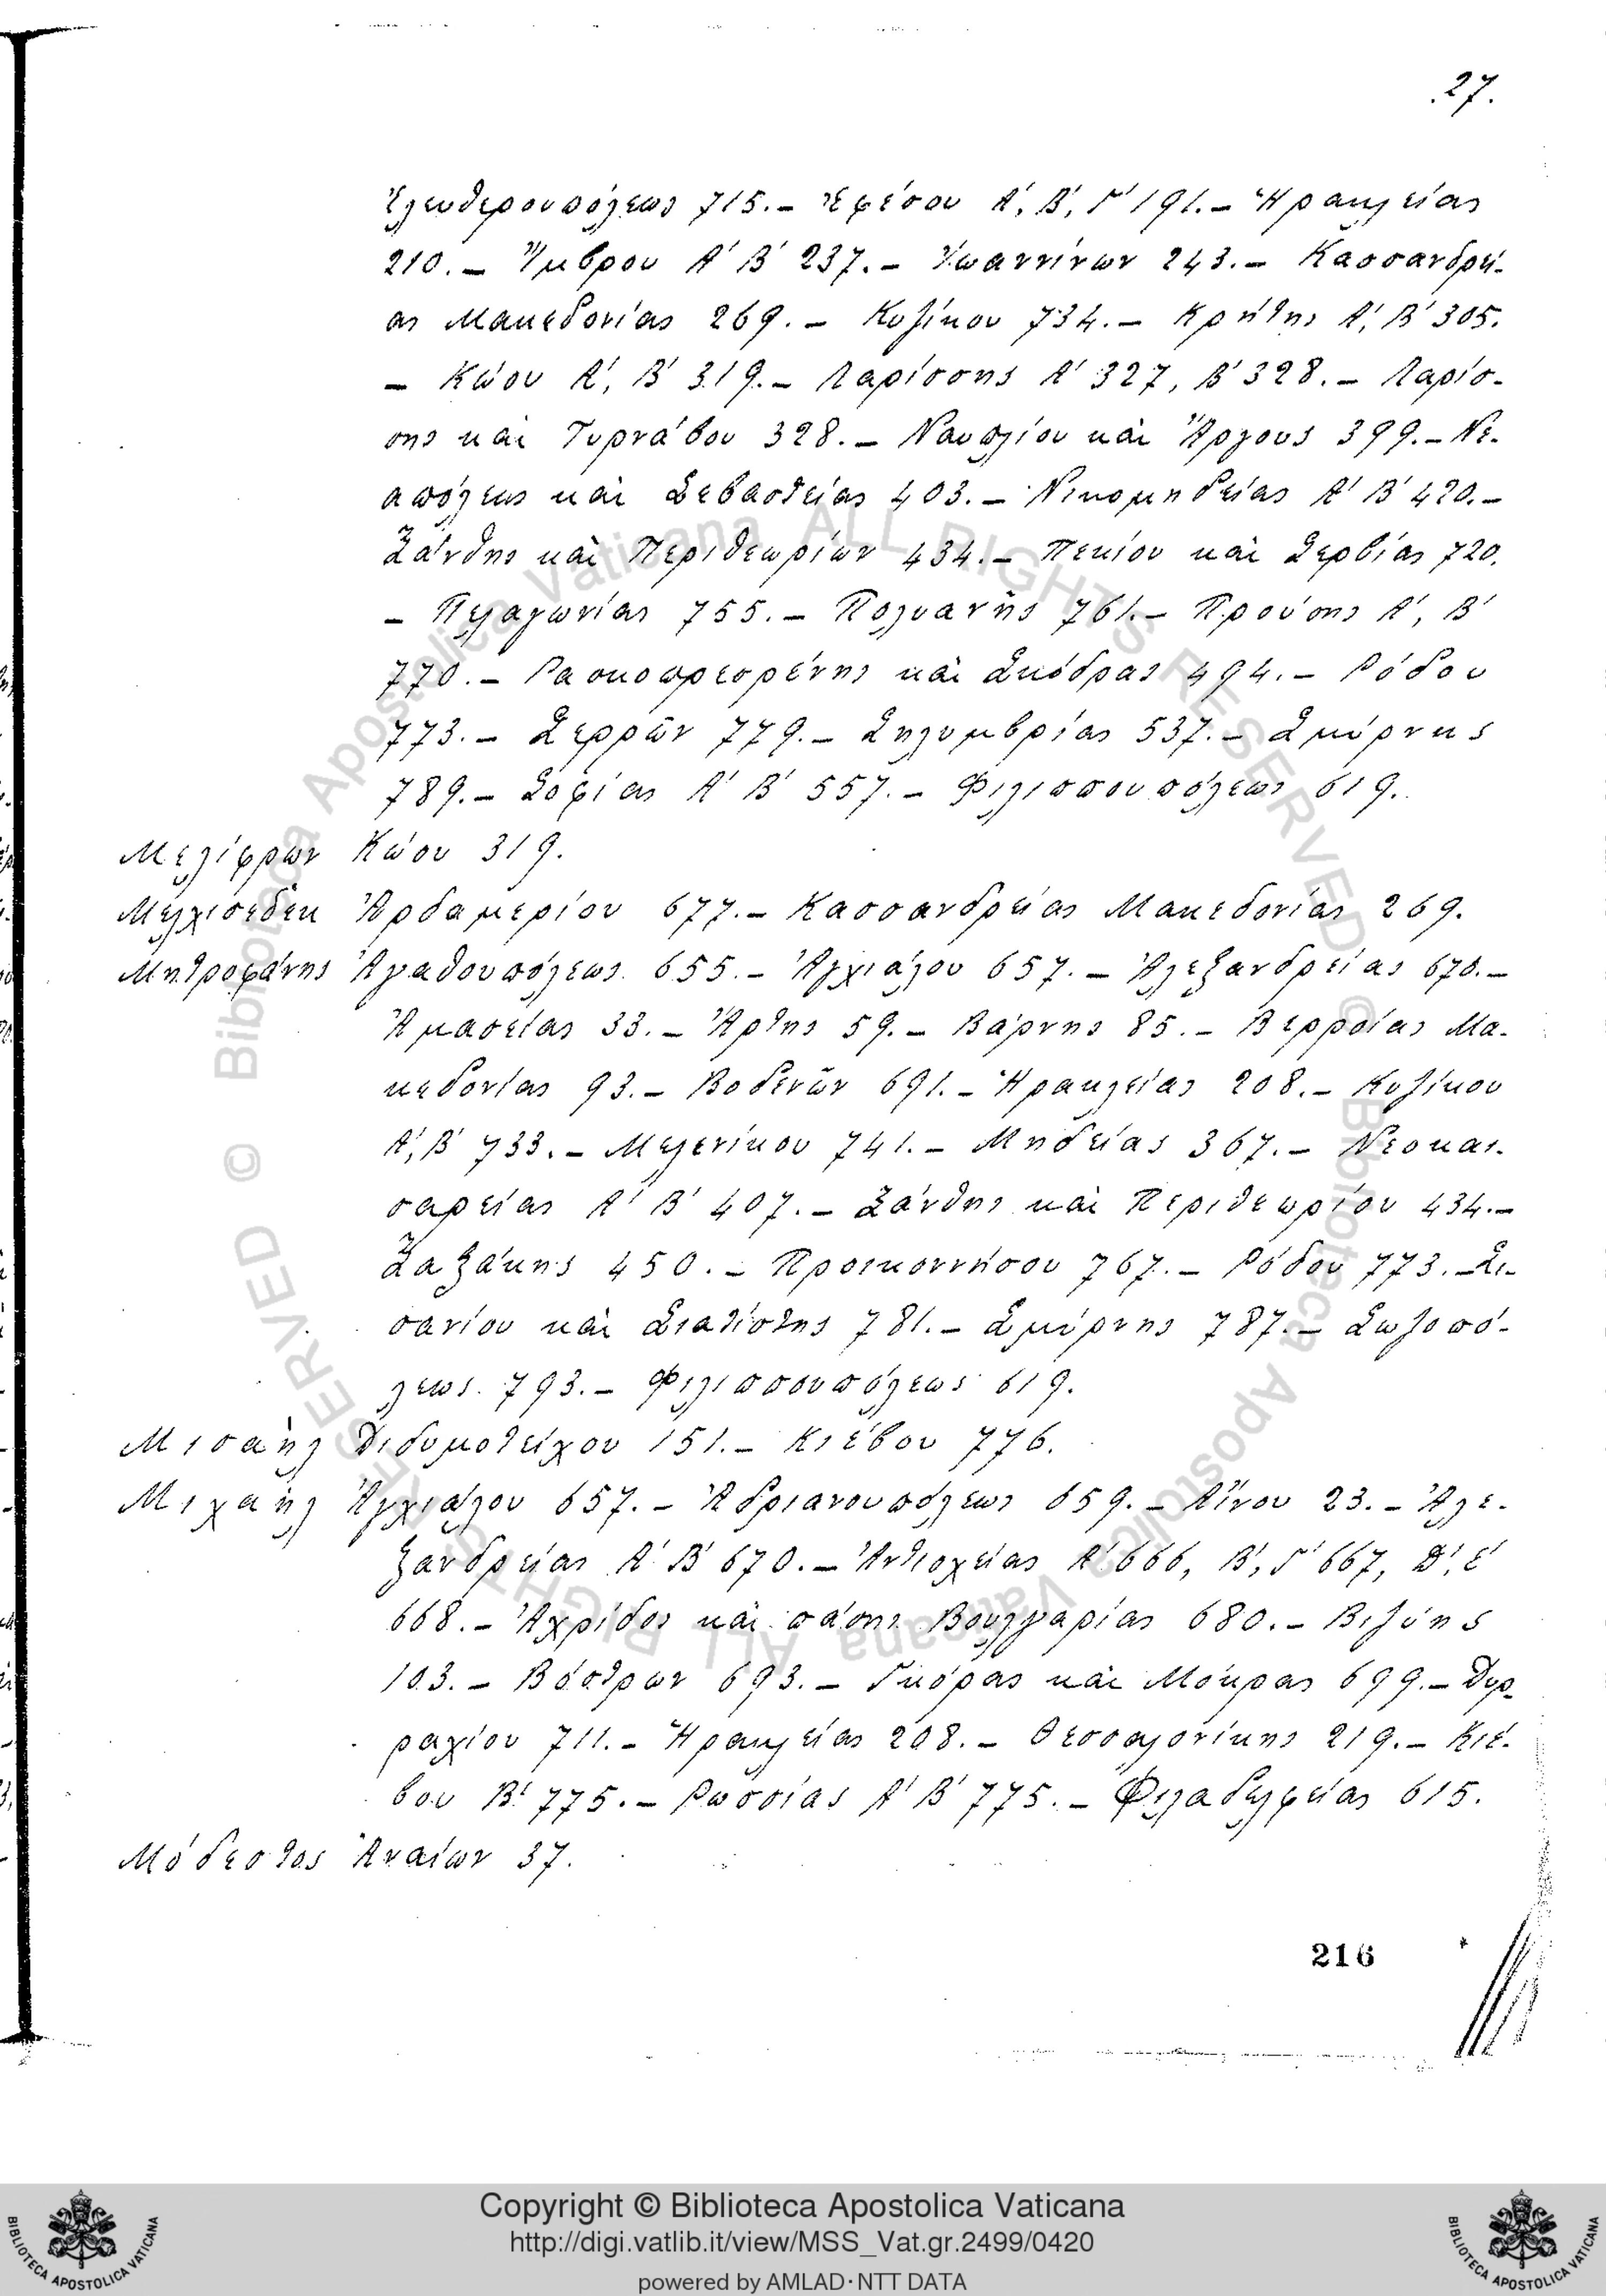 .27.
Ἐλευθερουπόλεως 715.– Ἐφέσου Α′, Β′, Γ′ 191.– Ἡρακλείας
210.– Ἴμβρου Α′ Β′ 237.– Ἰωαννίνων 243.– Κασσανδρεί-
ας Μακεδονίας 269.– Κυζίκου 734.– Κρήτης Α′, Β′ 305.
– Κώου Α′, Β′ 319.– Λαρίσσης Α′ 327, Β′ 328.– Λαρίσ-
σης καὶ Τυρνάβου 328.– Ναυπλίου καὶ Ἄργους 399.– Νε-
απόλεως καὶ Σεβαστείας 403.– Νικομηδείας Α′ Β′ 420.–
Ξάνθης καὶ Περιθεωρίων 434.– Πεκίου καὶ Σερβίας 720.
– Πελαγωνίας 755.– Πολυανῆς 761.– Προύσης Α′, Β′
770.– Ρασκοπρεσρένης καὶ Σκόδρας 494.– Ρόδου
773.– Σερρῶν 779.– Σηλυμβρίας 537.– Σμύρνης
789.– Σοφίας Α′ Β′ 557.– Φιλιππουπόλεως 619.
Μελίφρων Κώου 319.
Μελχισεδὲκ Ἀρδαμερίου 677.– Κασσανδρείας Μακεδονίας 269.
Μητροφάνης Ἀγαθουπόλεως 655.– Ἀγχιάλου 657.– Ἀλεξανδρείας 670.–
Ἀμασείας 33.– Ἄρτης 59.– Βάρνης 85.– Βερροίας Μα-
κεδονίας 93.– Βοδενῶν 691.– Ἡρακλείας 208.– Κυζίκου
Α′, Β′ 733.– Μελενίκου 741.– Μηδείας 367.– Νεοκαι-
σαρείας Α′ Β′ 407.– Ξάνθης καὶ Περιθεωρίου 434.–
Ζαζάκης 450.– Προικοννήσου 767.– Ρόδου 773.– Σι-
σανίου καὶ Σιατίστης 781.– Σμύρνης 787.– Σωζοπό-
λεως 793.– Φιλιππουπόλεως 619.
Μισαὴλ Διδυμοτείχου 151.– Κιέβου 776.
Μιχαὴλ Ἀγχιάλου 657.– Ἀδριανουπόλεως 659.– Αἴνου 23.– Ἀλε-
ξανδρείας Α′ Β′ 670.– Ἀντιοχείας Α′ 666, Β′, Γ′ 667, Δ′, Ε′
668.– Ἀχρίδος καὶ πάσης Βουλγαρίας 680.– Βιζύης
103.– Βόστρων 693.– Γκόρας καὶ Μόκρας 699.– Δυρ-
ραχίου 711.– Ἡρακλείας 208.– Θεσσαλονίκης 219.– Κιέ-
βου Β′ 775.– Ρωσσίας Α′ Β′ 775.– Φιλαδελφείας 615.
Μόδεστος Ἀναίων 37.
216
Biblioteca Apostolica Vaticana ALL RIGHTS RESERVED ©
Biblioteca Apostolica Vaticana ALL RIGHTS RESERVED ©
BIBLIOTECA APOSTOLICA VATICANA
Copyright © Biblioteca Apostolica Vaticana
http://digi.vatlib.it/view/MSS_Vat.gr.2499/0420
powered by AMLAD·NTT DATA
BIBLIOTECA APOSTOLICA VATICANA